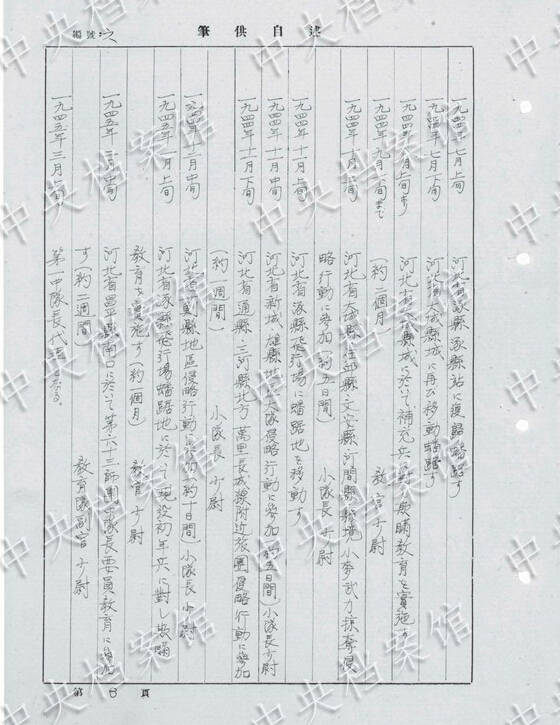 述自供筆
編號:
一九四四年七月上旬 河北省涿縣涿縣站に復歸蟠踞す
一九四四年七月下旬 河北省 縣城に再び移動蟠踞す
一九四四年八月上旬より 河北省 縣城に於いて補充兵に對し 教育を實施す
一九四四年九月 旬まで (約二個月) 教官 少尉
一九四四年十月上旬 河北省 縣任邱縣文安縣河間縣縣境小麥武力掠奪侵
略行動に參加(約五日間) 小隊長 少尉
一九四四年十一月上旬 河北省涿縣飛行場に蟠踞地を移動す
一九四四年十一月中旬 河北省新城・雄縣地區大隊侵略行動に參加(約五日間)小隊長少尉
一九四四年十一月下旬 河北省通縣・三河縣北方 萬里長城線附近旅團侵略行動に參加
(約一週間) 小隊長 少尉
一九四四年十二月中旬 河北省 縣地區侵略行動に參加(約十日間)小隊長 少尉
一九四五年一月上旬 河北省涿縣飛行場蟠踞地に於いて 現役初年兵に對し
教育を實施す(約一個月) 教官 少尉
一九四五年 月中旬 河北省昌平縣南口に於いて第六十三師團中隊長要員教育に參加
す(約二週間) 教育隊副官 少尉
一九四五年三月上旬 第一中隊長代理となる。
第 6 頁
中央档案馆